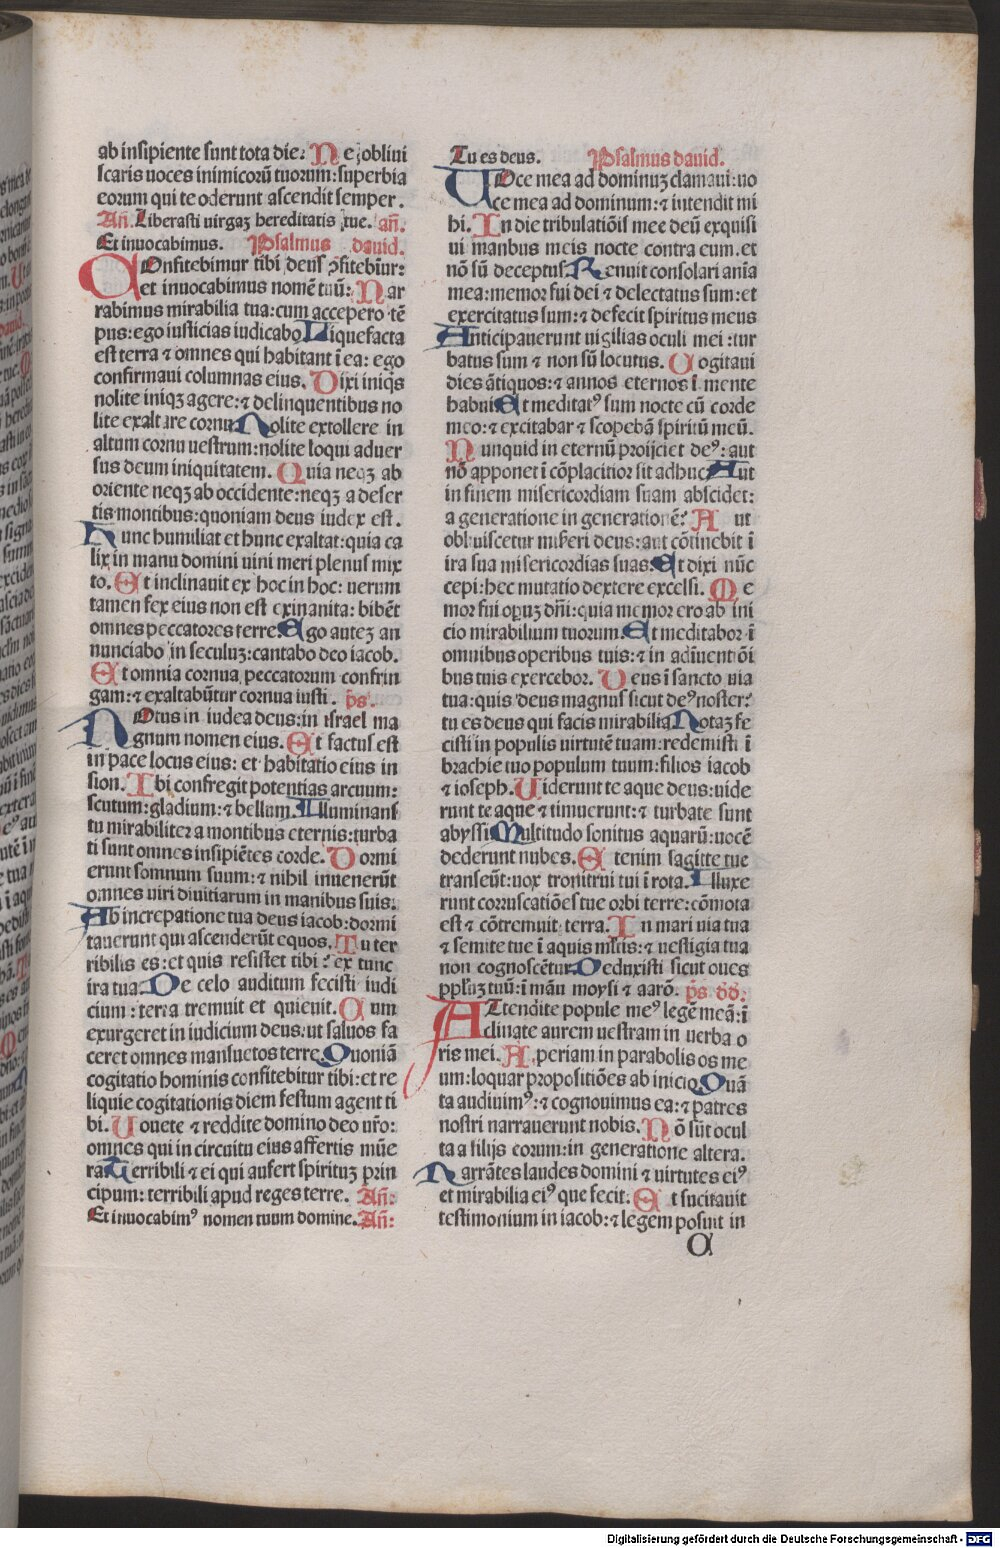 ab insipiente sunt tota die: Ne obliui
scaris uoces inimicorū tuorum: superbia
eorum qui te oderunt ascendit semper.
Añ. Liberasti uirgaꝫ hereditatis tue. añ.
Et inuocabimus. Psalmus dauid.
COnfitebimur tibi deus ꝯfitebīur:
et inuocabimus nomē tuū: Nar
rabimus mirabilia tua: cum accepero tē
pus: ego iusticias iudicabo Liquefacta
est terra ⁊ omnes qui habitant ī ea: ego
confirmaui columnas eius. Dixi iniqs
nolite iniqꝫ agere: ⁊ delinquentibus no
lite exaltare cornu Nolite extollere in
altum cornu uestrum: nolite loqui aduer
sus deum iniquitatem. Quia neqꝫ ab
oriente neqꝫ ab occidente: neqꝫ a deser
tis montibus: quoniam deus iudex est.
Hunc humiliat et hunc exaltat: quia ca
lix in manu domini uini meri plenus mix
to. Et inclinauit ex hoc in hoc: uerum
tamen fex eius non est exinanita: bibēt
omnes peccatores terre. Ego auteꝫ an
nunciabo in seculuꝫ: cantabo deo iacob.
Et omnia cornua peccatorum confrin
gam: ⁊ exaltabūtur cornua iusti. p̄s.
NOtus in iudea deus: in israel ma
gnum nomen eius. Et factus est
in pace locus eius: et habitatio eius in
sion. Ibi confregit potentias arcuum:
scutum: gladium: ⁊ bellum. Illuminans
tu mirabiliter a montibus eternis: turba
ti sunt omnes insipiētes corde. Dormi
erunt somnum suum: ⁊ nihil inuenerūt
omnes uiri diuitiarum in manibus suis:
Ab increpatione tua deus iacob: dormi
tauerunt qui ascenderūt equos. Tu ter
ribilis es: et quis resistet tibi: ex tunc
ira tua. De celo auditum fecisti iudi
cium: terra tremuit et quieuit. Cum
exurgeret in iudicium deus: ut saluos fa
ceret omnes mansuetos terre. Quoniā
cogitatio hominis confitebitur tibi: et re
liquie cogitationis diem festum agent ti
bi. Uouete ⁊ reddite domino deo ur̄o:
omnes qui in circuitu eius affertis mūe
ra Terribili ⁊ ei qui aufert spirituꝫ prin
cipum: terribili apud reges terre. Añ:
Et inuocabimꝰ nomen tuum domine. Añ:
Tu es deus. Psalmus dauid.
UOce mea ad dominuꝫ clamaui: uo
ce mea ad dominum: ⁊ intendit mi
hi. In die tribulatiōis mee deū exquisi
ui manbus meis nocte contra eum. et
nō sū deceptus Renuit consolari anīa
mea: memor fui dei ⁊ delectatus sum: et
exercitatus sum: ⁊ defecit spiritus meus
Anticipauerunt uigilias oculi mei: tur
batus sum ⁊ non sū locutus. Cogitaui
dies ātiquos: ⁊ annos eternos ī mente
habui Et meditatꝰ sum nocte cū corde
meo: ⁊ excitabar ⁊ scopebā spiritū meū.
Nunquid in eternū proijciet deꝰ: aut
nō apponet ī cōplacitior sit adhuc Aut
in finem misericordiam suam abscidet:
a generatione in generationē? Aut
obliuiscetur misreri deus: aut cōtinebit ī
ira sua misericordias suas. Et dixi nūc
cepi: hec mutatio dextere excelsi. Me
mor fui operuꝫ dn̄i: quia memor ero ab ini
cio mirabilium tuorum. Et meditabor ī
omnibus operibus tuis: ⁊ in adīuentōi
bus tuis exercebor. Deus ī sancto uia
tua: quis deus magnus sicut deꝰ noster:
tu es deus qui facis mirabilia Notaꝫ fe
cisti in populis uirtutē tuam: redemisti ī
brachio tuo populum tuum: filios iacob
⁊ ioseph. Uiderunt te aque deus: uide
runt te aque ⁊ timuerunt: ⁊ turbate sunt
abyssi Multitudo sonitus aquarū: uocē
dederunt nubes. Etenim sagitte tue
transeūt: uox tronitrui tui ī rota. Illuxe
runt corruscatiōes tue orbi terre: cōmota
est ⁊ cōtremuit terra. In mari uia tua
⁊ semite tue ī aquis mltis: ⁊ uestigia tua
non cognoscētur Deduxisti sicut oues
pplūꝫ tuū: ī mān moysi ⁊ aarō. p̄s dd.
ATtendite popule meꝰ legē meā: ī
clinate aurem uestram in uerba o
ris mei. Aperiam in parabolis os me
um: loquar propositiōes ab inicio Quā
ta audiuimꝰ: ⁊ cognouimus ea: ⁊ patres
nostri narrauerunt nobis. Nō sūt ocul
ta a filijs eorum: in generatione altera.
Narrātes laudes domini ⁊ uirtutes eiꝰ
et mirabilia eiꝰ que fecit. Et sucitauit
testimonium in iacob: ⁊ legem posuit in
Q
Digitalisierung gefördert durch die Deutsche Forschungsgemeinschaft - DFG